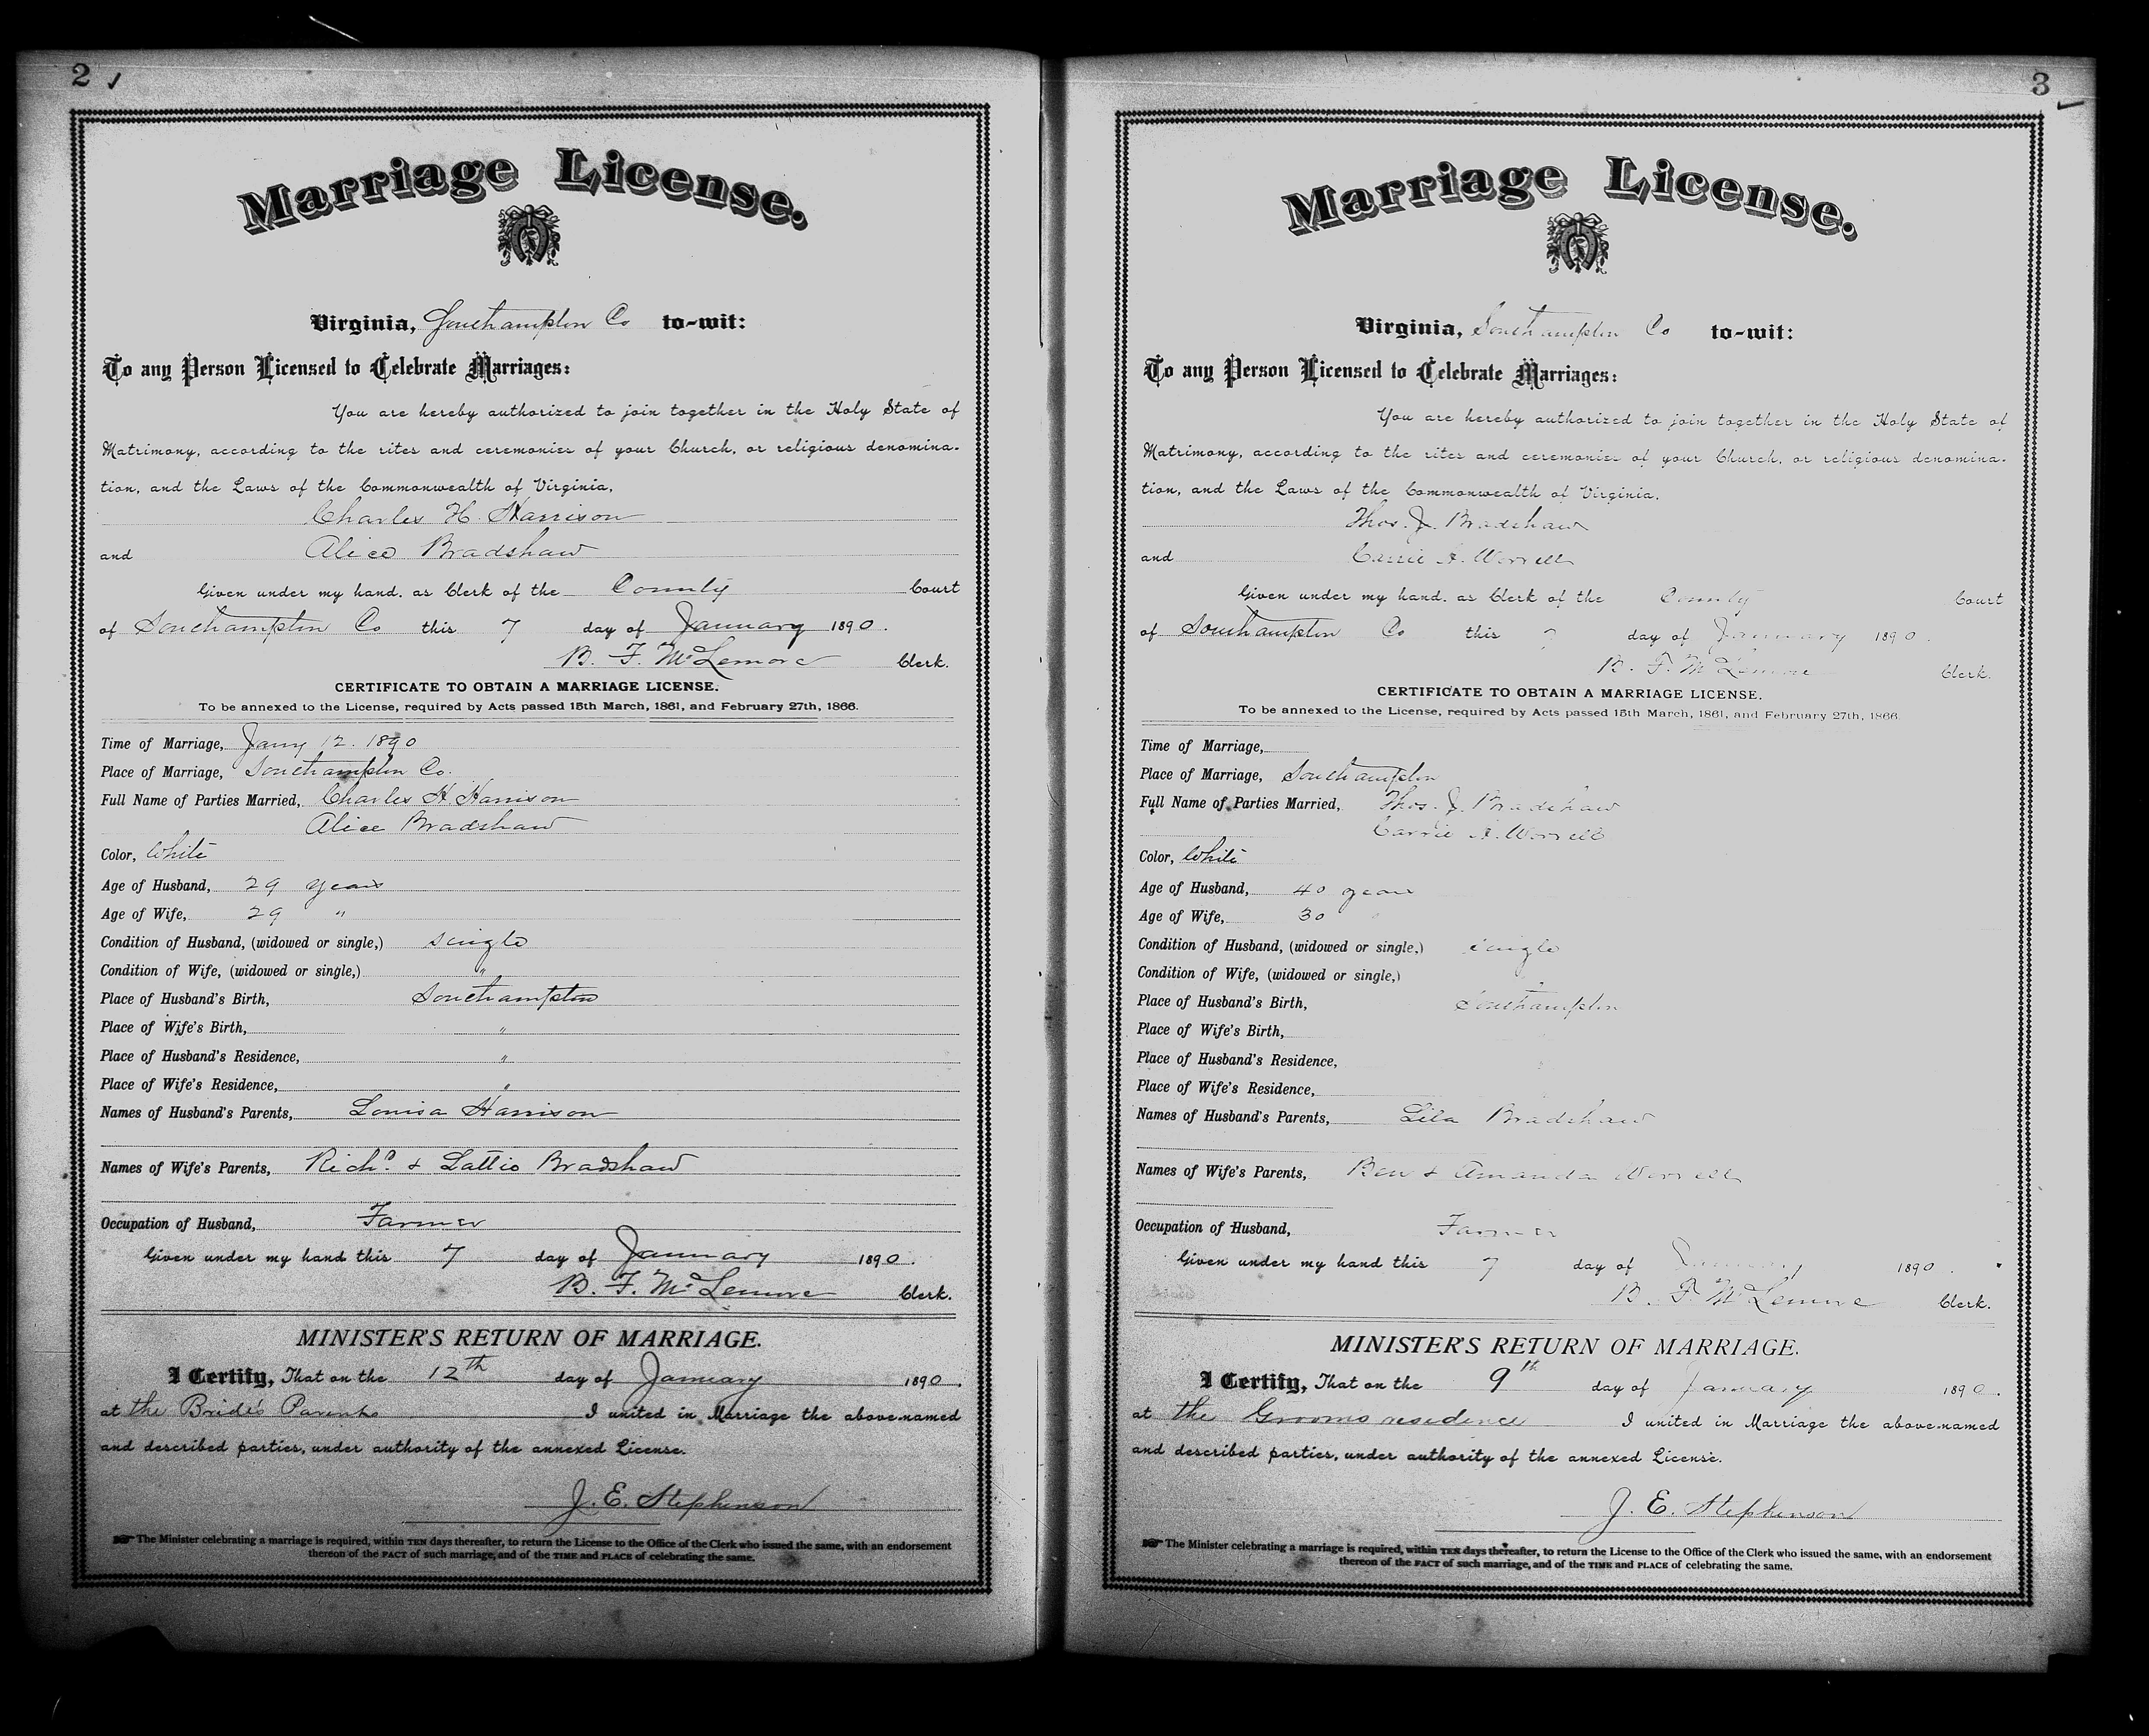 2
Marriage License.
Virginia, Southampton Co to-wit:
To any Person Licensed to Celebrate Marriages:
You are hereby authorized to join together in the Holy State of
Matrimony, according to the rites and ceremonies of your Church, or religious denomina-
tion, and the Laws of the Commonwealth of Virginia,
Charles H. Harrison
and Alice Bradshaw
Given under my hand, as Clerk of the County Court
of Southampton Co this 7 day of January 1890.
B. F. McLemore Clerk.
CERTIFICATE TO OBTAIN A MARRIAGE LICENSE.
To be annexed to the License, required by Acts passed 15th March, 1861, and February 27th, 1866.
Time of Marriage, Jany 12. 1890
Place of Marriage, Southampton Co.
Full Name of Parties Married, Charles H. Harrison
Alice Bradshaw
Color, White
Age of Husband, 29 years
Age of Wife, 29 "
Condition of Husband, (widowed or single,) single
Condition of Wife, (widowed or single,) "
Place of Husband's Birth, Southampton
Place of Wife's Birth, "
Place of Husband's Residence, "
Place of Wife's Residence, "
Names of Husband's Parents, Louisa Harrison
Names of Wife's Parents, Richd. & Lattie Bradshaw
Occupation of Husband, Farmer
Given under my hand this 7 day of January 1890.
B. F. McLemore Clerk.
MINISTER'S RETURN OF MARRIAGE.
I Certify, That on the 12th day of January 1890.
at the Bride's Parents I united in Marriage the above-named
and described parties, under authority of the annexed License.
J. E. Stephenson
The Minister celebrating a marriage is required, within TEN days thereafter, to return the License to the Office of the Clerk who issued the same, with an endorsement
thereon of the FACT of such marriage, and of the TIME and PLACE of celebrating the same.
3
Marriage License.
Virginia, Southampton Co to-wit:
To any Person Licensed to Celebrate Marriages:
You are hereby authorized to join together in the Holy State of
Matrimony, according to the rites and ceremonies of your Church, or religious denomina-
tion, and the Laws of the Commonwealth of Virginia,
Thos. J. Bradshaw
and Carrie A. Worrell
Given under my hand, as Clerk of the County Court
of Southampton Co this 7 day of January 1890.
B. F. McLemore Clerk.
CERTIFICATE TO OBTAIN A MARRIAGE LICENSE.
To be annexed to the License, required by Acts passed 15th March, 1861, and February 27th, 1866.
Time of Marriage,
Place of Marriage, Southampton
Full Name of Parties Married, Thos. J. Bradshaw
Carrie A. Worrell
Color, White
Age of Husband, 40 years
Age of Wife, 30
Condition of Husband, (widowed or single,) single
Condition of Wife, (widowed or single,)
Place of Husband's Birth, Southampton
Place of Wife's Birth,
Place of Husband's Residence,
Place of Wife's Residence,
Names of Husband's Parents, Lila Bradshaw
Names of Wife's Parents, Ben & Amanda Worrell
Occupation of Husband, Farmer
Given under my hand this 7 day of January 1890.
B. F. McLemore Clerk.
MINISTER'S RETURN OF MARRIAGE.
I Certify, That on the 9th day of January 1890.
at the Grooms residence I united in Marriage the above-named
and described parties, under authority of the annexed License.
J. E. Stephenson
The Minister celebrating a marriage is required, within TEN days thereafter, to return the License to the Office of the Clerk who issued the same, with an endorsement
thereon of the FACT of such marriage, and of the TIME and PLACE of celebrating the same.